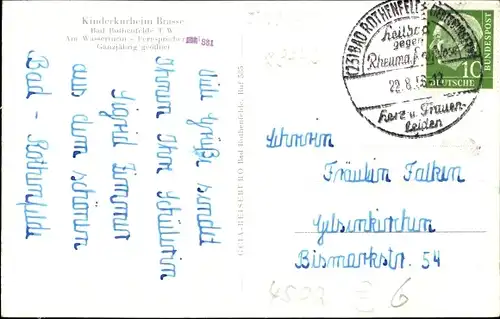 Kinderkurheim Brasse
Bad Rothenfelde T.W.
Am Wasserturm - Fernsprecher 581
Ganzjährig geöffnet
Viele Grüße sendet
Ihnen Ihre Schülerin
Sigrid Zimmer
aus dem schönen
Bad - Rothenfelde
Bad Rothenfelde, Ruf 535
(23) BAD ROTHENFELDE
heilt
gegen
Rheuma,
22.8.
Herz u. Frauen-
leiden
DEUTSCHE
BUNDESPOST
10
Fräulein Falken
Gelsenkirchen
Bismarckstr. 54
6